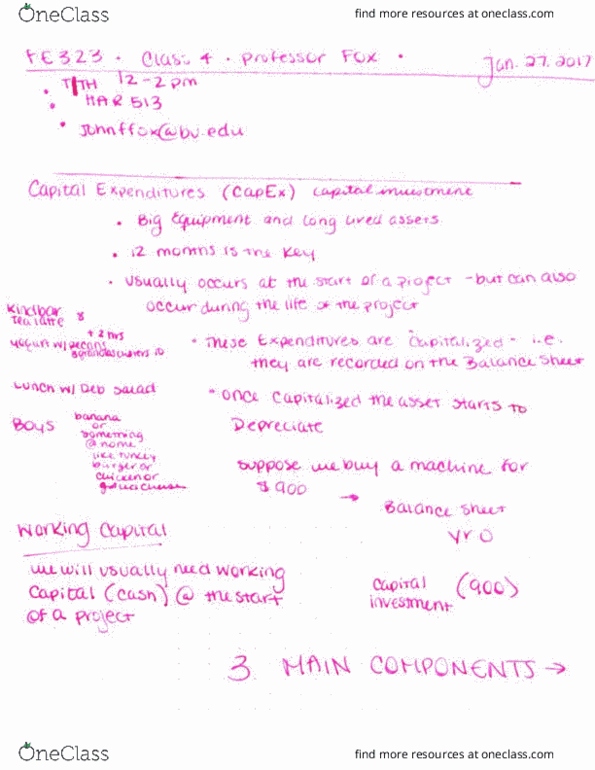 OneClass
find more resources at oneclass.com
FE323 • Class 4 • Professor Fox •
Jan. 27. 2017
• T/TH 12-2pm
• HAR 513
• Johnffox@bu.edu
Capital Expenditures (CapEx) capital investment
• Big Equipment and long lived assets
• 12 months is the key
• usually occurs at the start of a project - but can also
occur during the life of the project
• These Expenditures are "capitalized" - i.e.
they are recorded on the Balance Sheet
• once capitalized the asset starts to
Depreciate
Kindbar
tea latte
+ 2 hrs
yogurt w/ pecans
Lunch w/ Deb salad
Boys
banana
or
something
@ home
like turkey
burger or
chicken or
suppose we buy a machine for
$900 →
Balance Sheet
Yr 0
capital
investment
(900)
Working Capital
we will usually need working
capital (cash) @ the start
of a project
3 MAIN COMPONENTS →
OneClass
find more resources at oneclass.com